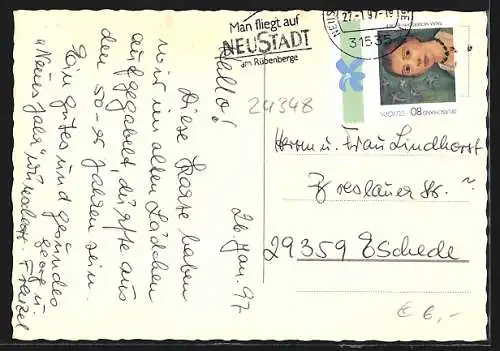 Man fliegt auf
NEUSTADT
am Rübenberge
27-1.97-18
31535
80
24348
Hello!
26. Jan. 97
Diese Karte haben
wir im alten Lädchen
aufgegabelt, dürfte aus
den 50-er Jahren sein.
Ein gutes und gesundes
"Neues Jahr" wünschen
Georg u.
Herrn u. Frau Lindhorst
Breslauer Str.
29359 Eschede
€ 6,-